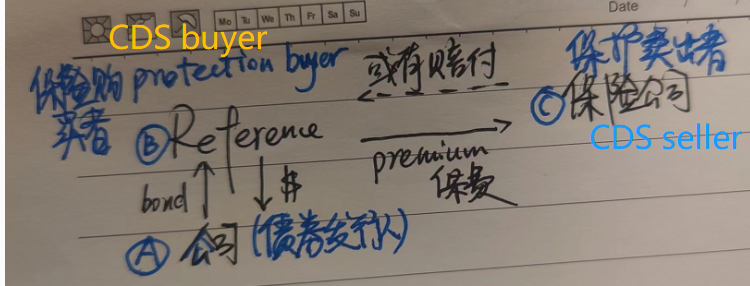 Mo Tu We Th Fr Sa Su
Date
CDS buyer
保险购买者
protection buyer
或有赔付
保护卖出者
Ⓑ Reference
premium
保费
Ⓒ 保险公司
CDS seller
bond
$
Ⓐ 公司 (债券发行人)